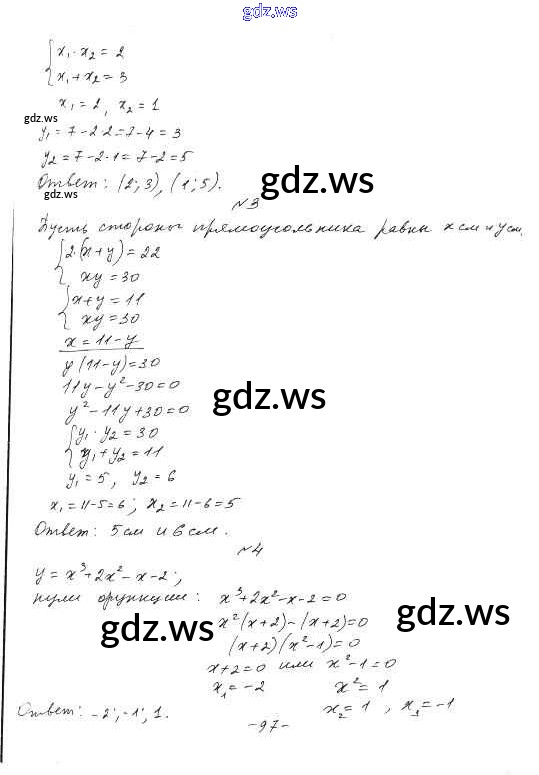 gdz.ws
{ x₁ · x₂ = 2
{ x₁ + x₂ = 3
x₁ = 2, x₂ = 1
gdz.ws
y₁ = 7 - 2·2 = 7 - 4 = 3
y₂ = 7 - 2·1 = 7 - 2 = 5
Ответ: (2; 3), (1; 5).
gdz.ws
gdz.ws
№3
Пусть стороны прямоугольника равны x см и y см.
{ 2·(x+y) = 22
{ xy = 30
{ x+y = 11
{ xy = 30
x = 11 - y
y(11-y) = 30
11y - y² - 30 = 0
gdz.ws
y² - 11y + 30 = 0
{ y₁ · y₂ = 30
{ y₁ + y₂ = 11
y₁ = 5, y₂ = 6
x₁ = 11-5 = 6; x₂ = 11-6 = 5
Ответ: 5 см и 6 см.
№4
y = x³ + 2x² - x - 2;
нули функции: x³ + 2x² - x - 2 = 0
gdz.ws
x²(x+2) - (x+2) = 0
gdz.ws
(x+2)(x²-1) = 0
x+2 = 0 или x²-1 = 0
x₁ = -2 x² = 1
x₂ = 1, x₃ = -1
Ответ: -2; -1; 1.
-97-